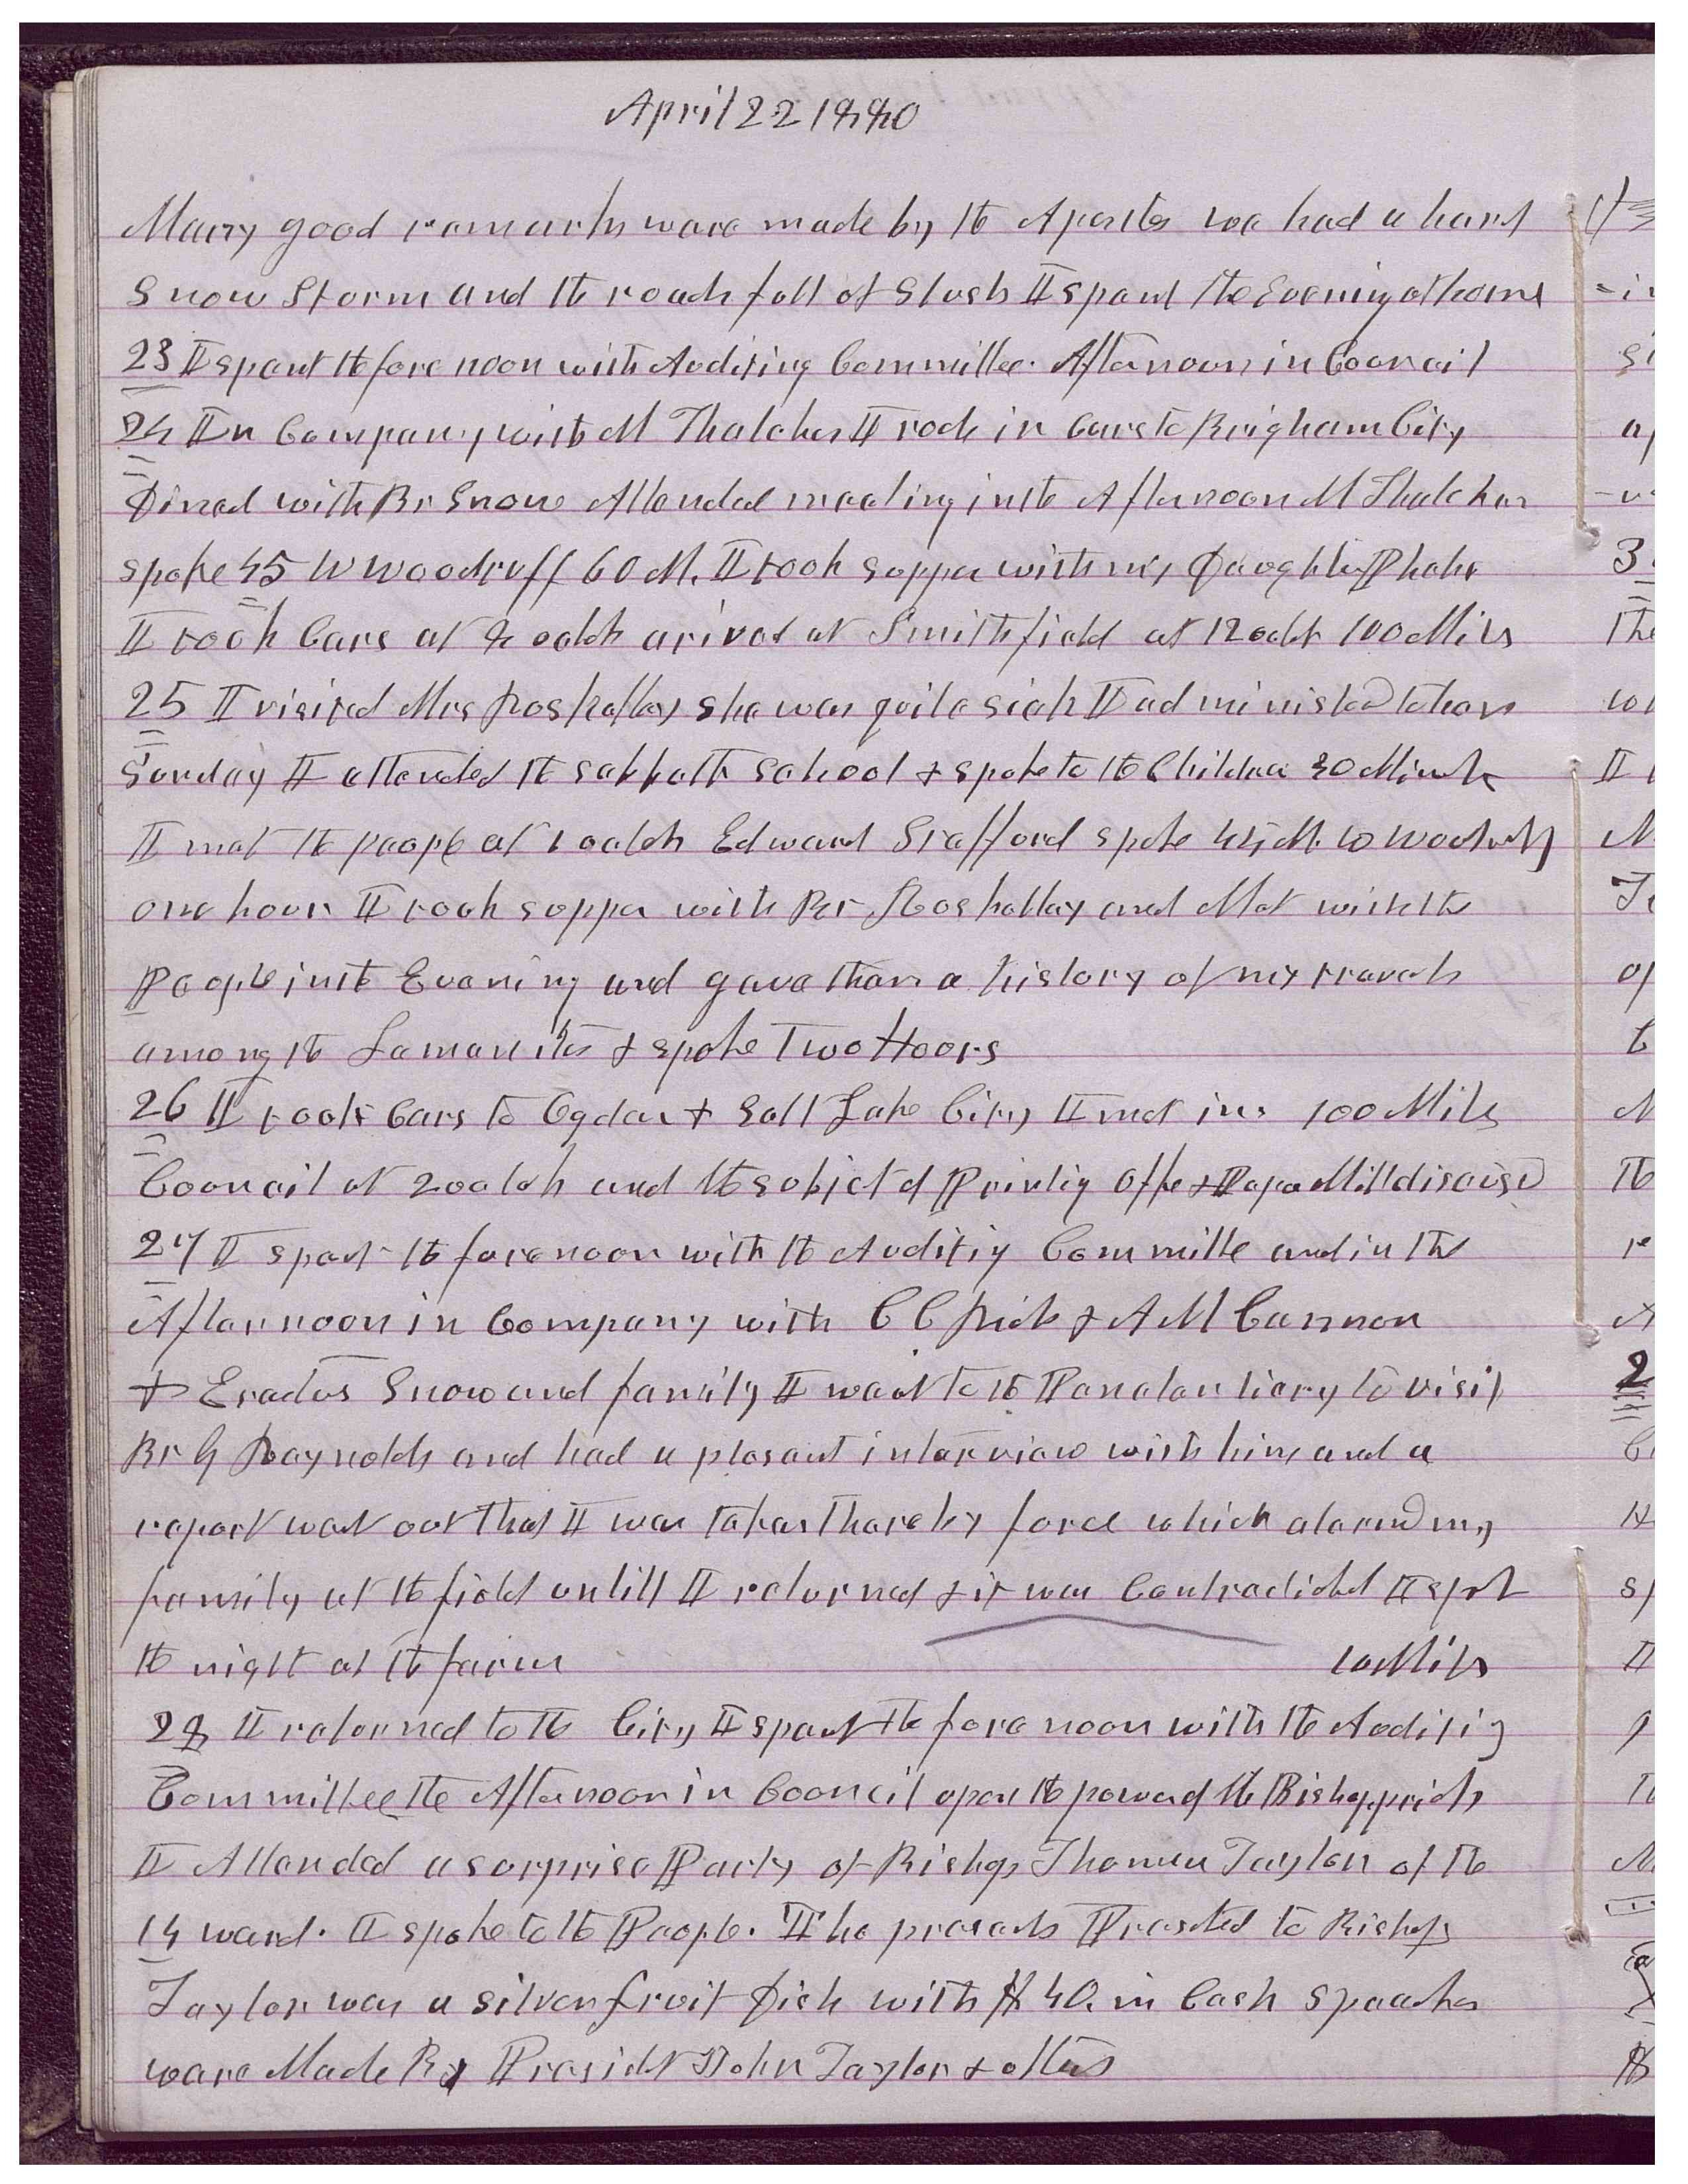 April 22 1880
Many good remarks ware made by the Apostles we had a hard
snow storm and the roads full of slush I spent the Evening at home
23 I spent the fore noon with Auditing Committee. Afternoon in Council
24 In Company with M Thatcher I rode in Cars to Brigham City
Dined with Br Snow Attended meeting in the Afternoon M Thatcher
spoke 45 W Woodruff 60 M. I took supper with my Daughter Phebe
I took Cars at 8 oclok arived at Smithfield at 12 oclk 100 Miles
25 I visited Mrs Roskelley she was quite sick I administed to her
Sunday I attended the sabbath school & spoke to the Children 30 Minuts
I met the people at 2 oclok Edward Stafford spoke 45 M. W Woodruff
one hour I took supper with Br Roskelley and Met with the
People in the Evening and gave them a history of my travels
among the Lamanites & spoke Two Hours
26 I took Cars to Ogden & Salt Lake City I met in 100 Miles
Council at 2 oclok and the subject of Printig Offe & Paper Mill discusd
27 I spent the forenoon with the Auditig Committe and in the
Afternoon in Company with C C Rich & A M Cannon
& Erastus Snow and family I went to the Penetentiery to visit
Br G Raynolds and had a plesant interview with him and a
report went out that I was taken there by force which alarmd my
family at the field untill I returned & it was Contradicted I spet
the night at the farm 10 Miles
28 I returned to the City I spent the fore noon with the Auditig
Committee the Afternoon in Council upon the power of the Bishopprick
I Attended a surprise Party of Bishop Thomas Taylor of the
14 ward. I spoke to the People. The presents Presented to Bishop
Taylor was a silver fruit Dish with $40. in Cash speeches
ware Made By Presidet John Taylor & others